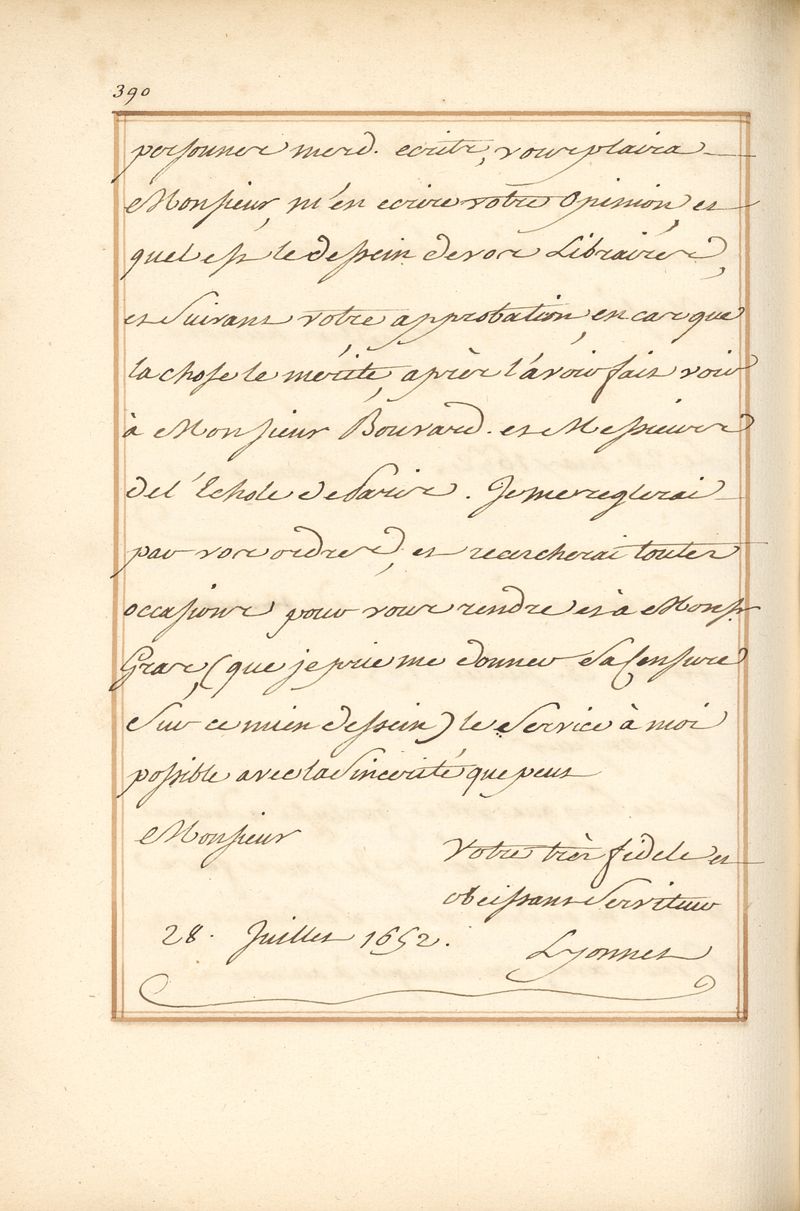 390
personnes m'ered. ecrits, vous plaira
Monsieur, m'en ecrire votre Opinion, et
quel est le dessein de vos Libraires,
et Suivant votre approbation, en cas que
la chose le mérite, après l'avoir fait voir
à Monsieur Bouvard. et Messieurs
de l'Echole de Paris. Je me reglerai
par vos ordres, et recercherai toutes
occasions pour vous rendre et à Monsr.
Gras, (que je prie me donner Sa Censure
Sur ce mien dessein) le Service à moi
possible avec la Sincerité que peut
Monsieur
Votre très fidele et
obeissant Serviteur
28. Juillet 1652.
Lyonnet